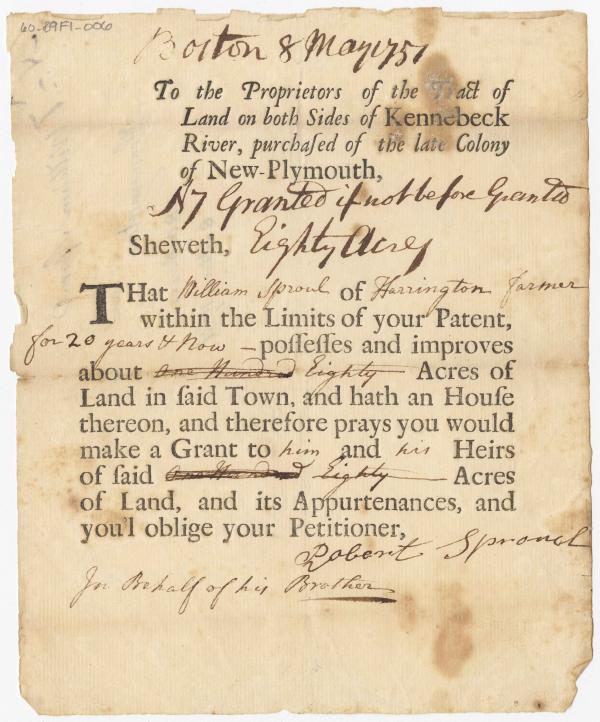 60-29F1-006
Boston 8 May 1751
To the Proprietors of the Tract of
Land on both Sides of Kennebeck
River, purchaſed of the late Colony
of New-Plymouth,
N7 Granted if not before Granted
Sheweth, Eighty Acres
THat William Sproul of Harrington farmer
within the Limits of your Patent,
for 20 years & Now — poſſeſſes and improves
about one Hundred Eighty Acres of
Land in ſaid Town, and hath an Houſe
thereon, and therefore prays you would
make a Grant to him and his Heirs
of ſaid one Hundred Eighty Acres
of Land, and its Appurtenances, and
you'l oblige your Petitioner,
Robert Sproul
In Behalf of his Brother